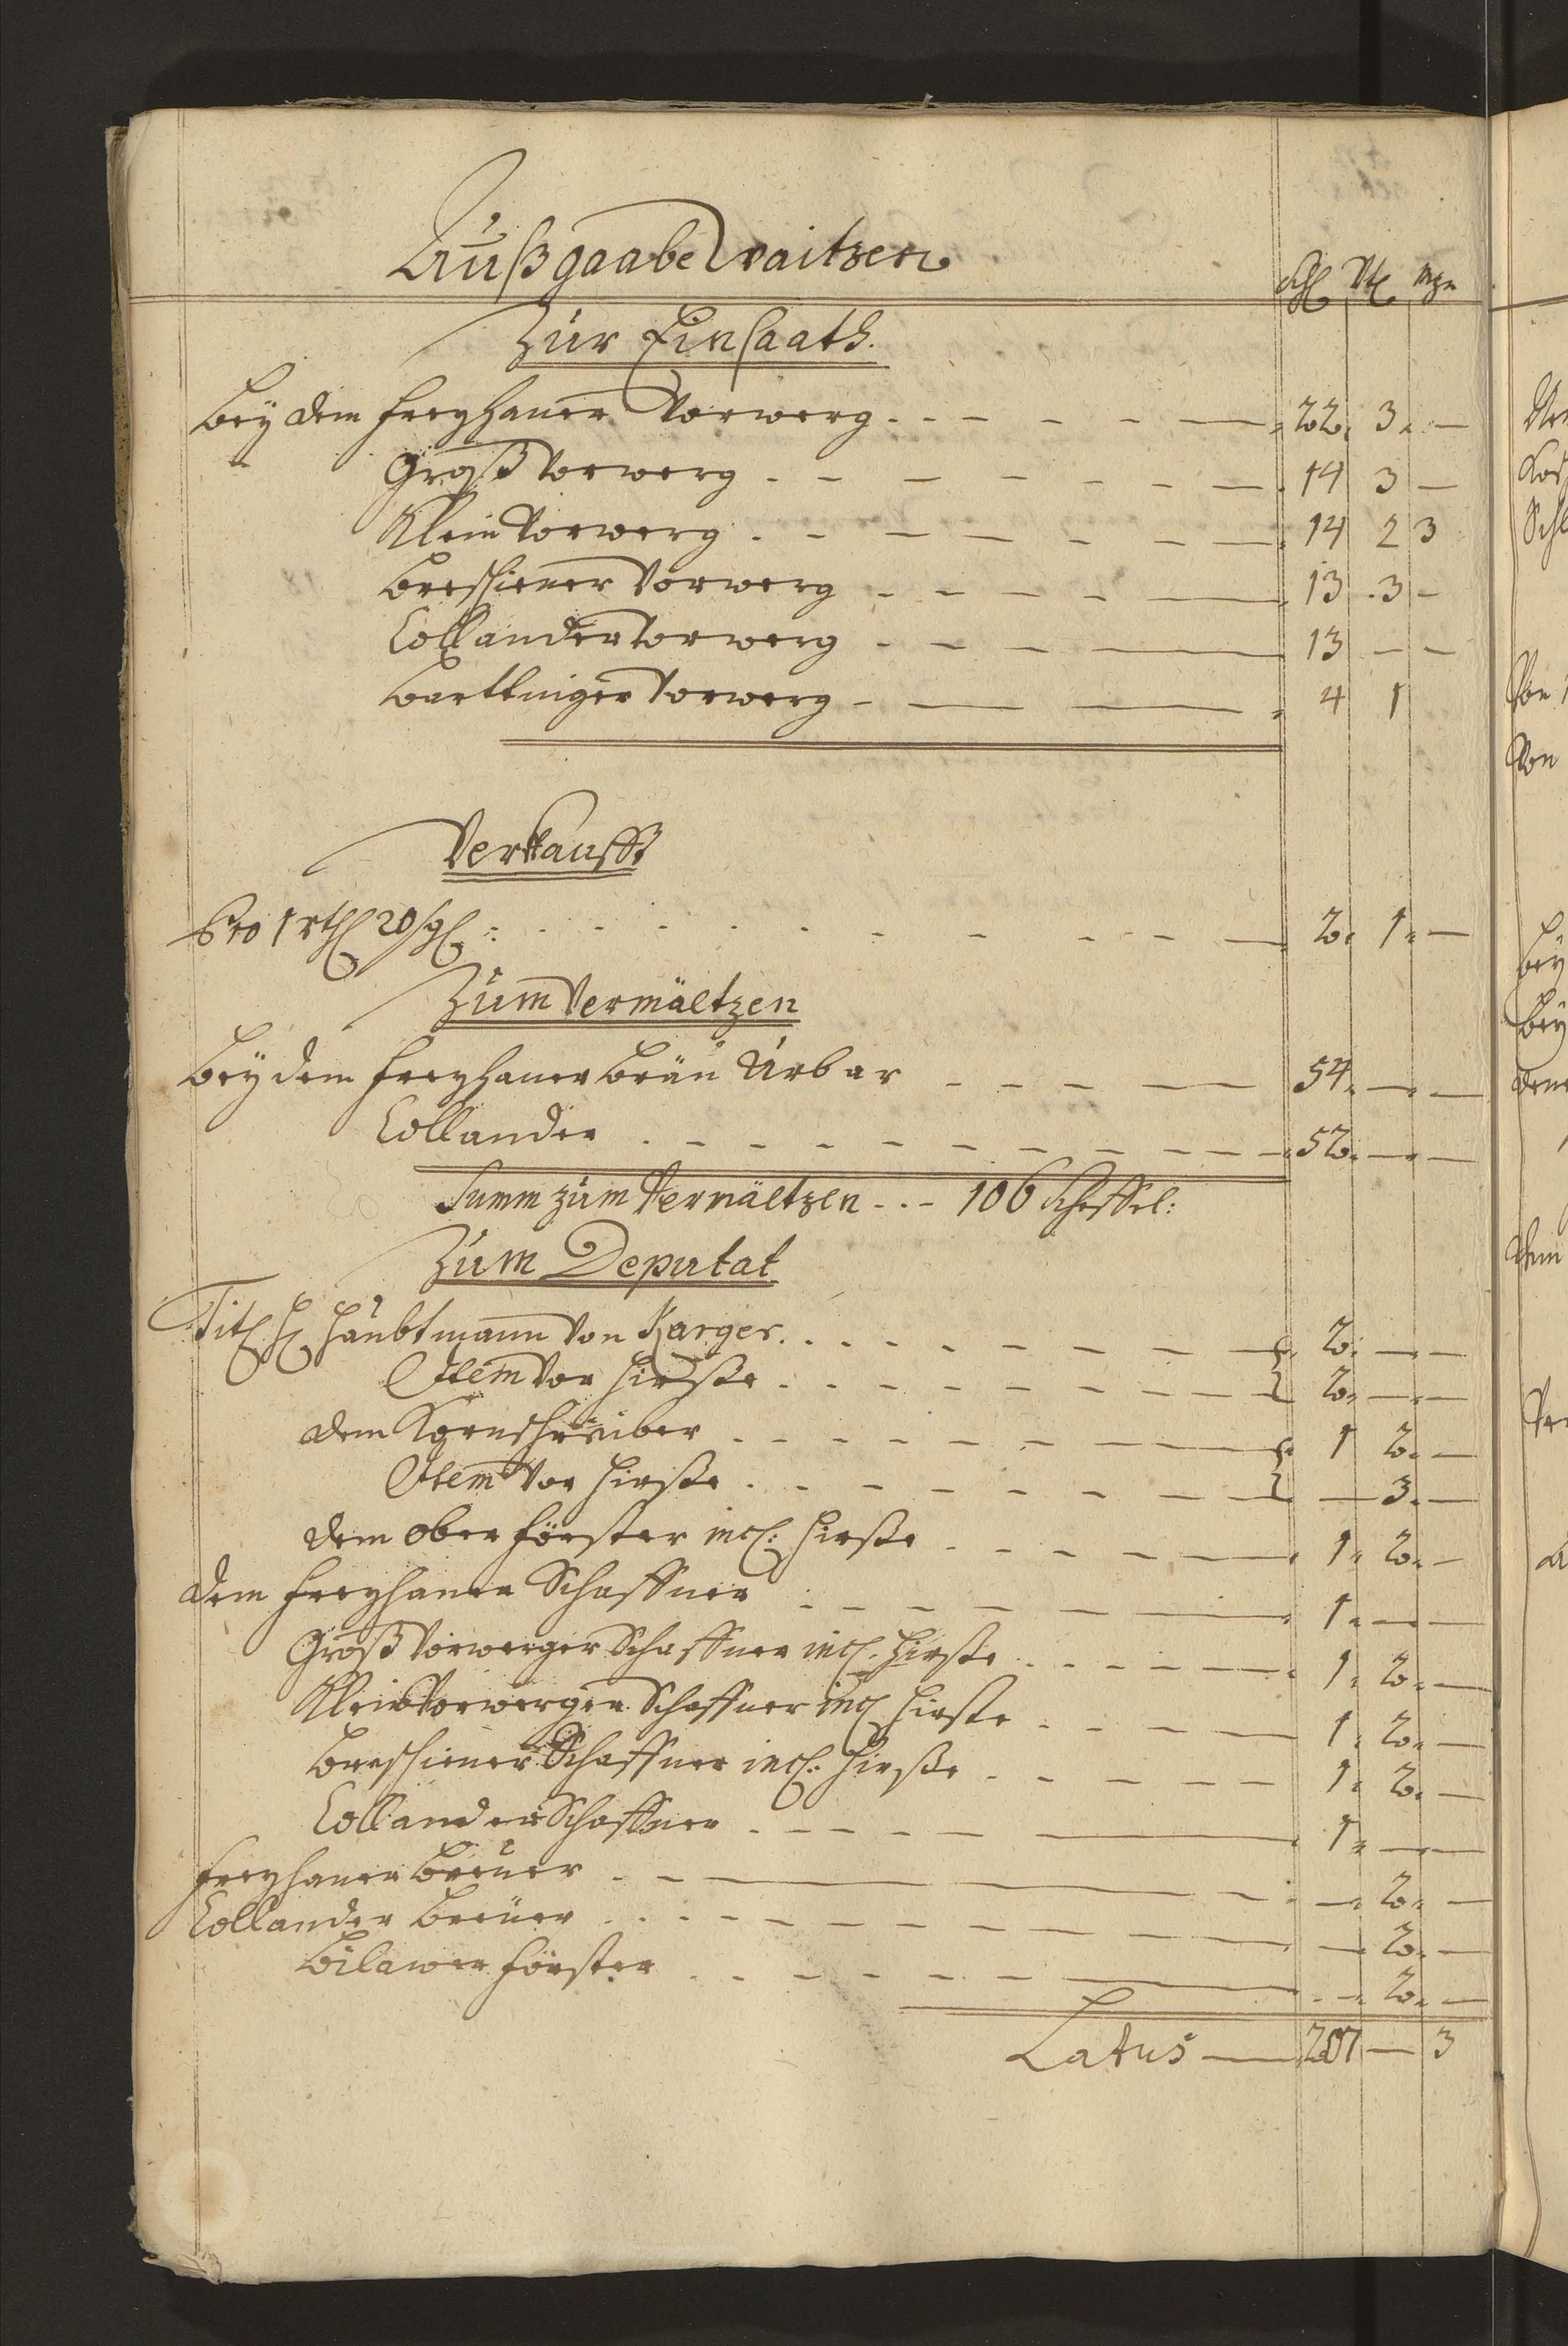 Außgaabe Waitzen
Schl Vtl Mzn
Zur Einsaath.
Bey dem Freyhaner Vorwerg - - - 22. 3. -
" Groß Vorwerg - - - 14 3 -
Klein Vorwerg - - - 14 2 3
Breschiener Vorwerg - - - 13 . 3 -
Collander Vorwerg - - - 13 - -
Barttniger Vorwerg - - - 4 1
Verkaufft
Pro 1 rthl 20 sgl: - - - 2. 1. -
Zum Vermältzen
Bey dem Freyhaner Bräu Urbar - - - 54. - -
Collander - - - 52. - -
Summ zum Vermältzen - - - 106 Scheffel:
Zum Deputat
Titl H Haubtmann von Karger - - - 2. - -
Item vor Hirße - - - 2. - -
dem Kornschreiber - - - 1 2. -
Item vor Hirße - - - - 3. -
dem Ober Förster incl: Hirße - - - 1. 2. -
dem Freyhaner Schaffner - - - 1. - -
Groß Vorwerger Schaffner incl. Hirße - - - 1. 2. -
Klein Vorwerger Schaffner incl Hirße - - - 1. 2. -
Breschiener Schaffner incl: Hirße - - - 1. 2. -
Collander Schaffner - - - 1. - -
Freyhaner Breuer - - - - 2. -
Collander Breuer - - - - 2. -
Bilawer Förster - - - - 2. -
Latus - 207 - 3